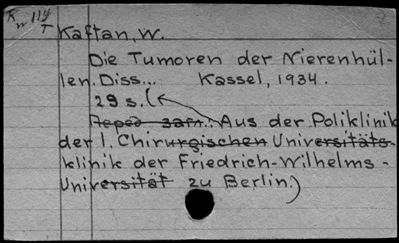 K 114
n T
Kaftan, W.
Die Tumoren der Nierenhül-
len. Diss... Kassel, 1934.
29 s. (
Aus der Poliklinik
der 1. Chirurgischen Universitäts-
klinik der Friedrich-Wilhelms-
Universität zu Berlin.)